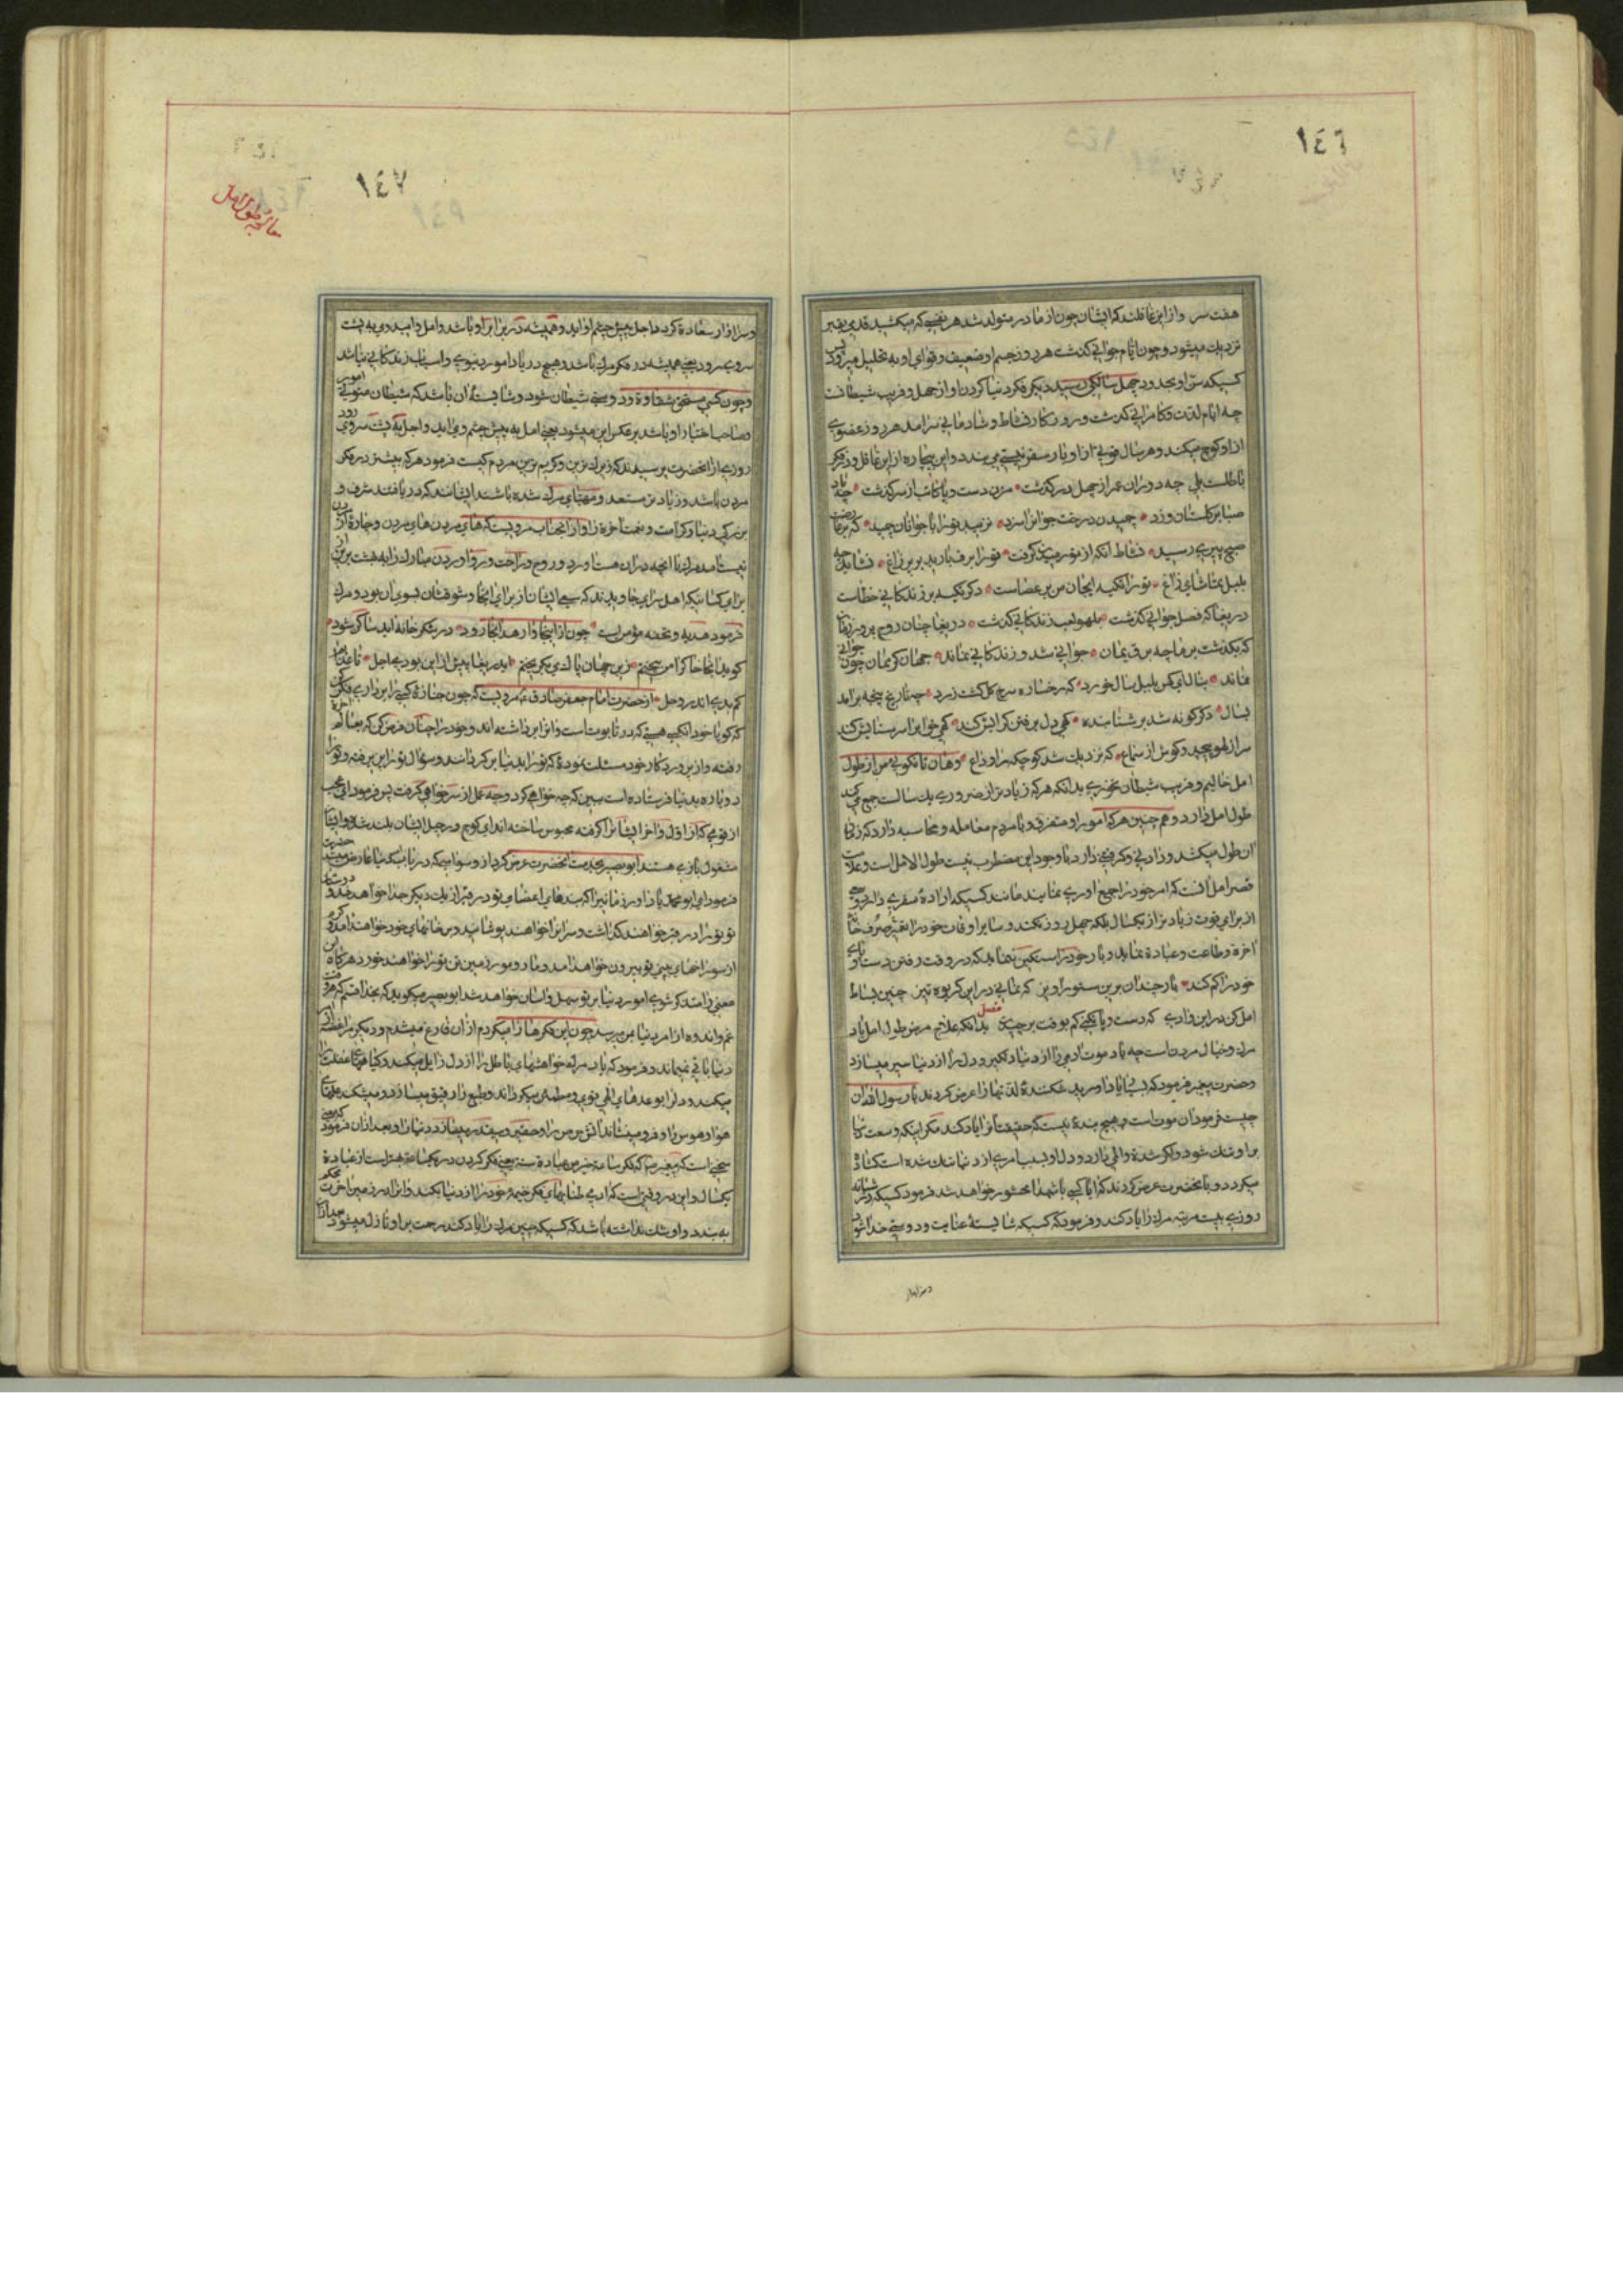 ١٤٦
هفت سر و از این غافلند که ایشان چون از مادر متولد شد هر نفسی که میکشید قدمی بقبر
نزدیك میشود و چون ایام جوانی گذشت هر روز جسم او ضعیف و قوای او به تحلیل میرود پس
کسیکه سن او بحدود چهل سالگی رسید دیگر فکر دنیا کردن او از جهل و فریب شیطانست
چه ایام لذت و کامرانی گذشت و روزگار نشاط و شادمانی سرآمد هر روز عضوی
از او کوچ میکند و هر سال قوتی از او بار سفر نیستی می بندد و این بیچاره از این غافل و در فکر
باطلست بلی چه دوران عمر از چهل درگذشت مزن دست و پا کابت از سر گذشت چه باد
صبا بر گلستان وزد چمیدن درخت جوانرا سزد نزیبد تو را با جوانان چمید که بر عارضت
صبح پیری دمید نشاط آنکه از تو رمیدن گرفت تو را برف بارید بر پر زاغ نشاید چه
بلبل تماشای باغ تو را تکیه ایجان من بر عصاست دگر تکیه بر زندگانی خطاست
دریغا که فصل جوانی گذشت بلهو و لعب زندگانی گذشت دریغا چنان روح پرور زمان
که بگذشت بر ما چه برق یمان جوانی شد و زندگانی نماند جهان گو ممان چون جوانی
نماند بنال ای کهن بلبل سال خورد که رخساره سرخ گل گشت زرد چه تاریخ پنجه برآمد
بسال دگر گونه شد بر شتابنده گهی دل برفتن گرایش کند گهی خواب را سر ستایش کند
سر از لهو پیچید و گوش از سماع که نزدیك شد کوچگه را وداع و هان تا نگوئی من از طول
امل خالیم و فریب شیطان نخوری بدانکه هر که زیادتر از ضروری یك سالست جمع می کند
طول امل دارد و هم چنین هر که امور او متفرق و با مردم معامله و محاسبه دارد که زمان
آن طول میکشد و داد نی و گرفتنی دارد با وجود این مضطرب نیست طول الامل است و علامت
قصر امل آنست که امر خود را جمیع آوری نماید مانند کسیکه اراده سفری دارد و سعی
از برای قوت زیادتر از یکسال بلکه چهل روز نکند و سایر اوقات خود را صرف خانه
آخرة و طاعت و عبادة نماید و بار خود را سنگین ننماید که در وقت رفتن دست و پای
خود را گم کند بار چندان برین ستور آویز که نمانی در این کریوه تیز چنین بساط
امل کن در این وادی که دست و پا نکنی گم بوقت برچیدن فصل بدانکه علاج مرض طول امل یاد
مرك و خیال مردن است چه یاد موت آدمی را از دنیا دلگیر و دل را از دنیا سیر میسازد
و حضرت پیغمبر فرمود که بسیار یاد آورید شکننده لذتها را عرض کردند یا رسول الله آن
چیست فرمود آن موت است و هیچ بندهٔ نیست که حقیقتا آنرا یاد کند مگر اینکه وسعت دنیا
بر او تنك شود و اگر شدة و المی دارد و دل او بسبب امری از دنیا تنك شده است گشاده
میگردد و بآنحضرت عرض کردند که آیا کسی با شهدا محشور خواهد شد فرمود کسیکه در شبانه
روزی بیست مرتبه مرك را یاد کند و فرمود که کسیکه شایستهٔ عنایت و دوستی خدا شود
و سزاوار
١٤٧
معالجه طول امل
و سزاوار سعادة گردد اجل پیش چشم او آید و همیشه در برابر او باشد و امل و امید وی به پشت
سروی سرود یعنی همیشه در فکر مرك باشد و هیچ در یاد امور دنیوی و اسباب زندگانی نباشد
و چون کسی مستحق شقاوة و دوستی شیطان شود و شایستهٔ آن باشد که شیطان متولی امور
و صاحب اختیار او باشد بر عکس این میشود یعنی امل به پیش چشم وی آید و اجل به پشت سر وی رود
روزی از آنحضرت پرسیدند که زیرك ترین و کریم ترین مردم کیست فرمود هر که بیشتر در فکر
مردن باشد و زیادتر مستعد و مهیای مرك شده باشند ایشانند که دریافتند شرف و
بزرگی دنیا و کرامت و نعمت آخرة را و از آنجناب مرویست که های مردن های مردن و چاره از آن
نیست آمد مرك با آنچه در آن هست آورد و روح و راحت و رو آوردن مبارك را به بهشت برین
برای کسانیکه اهل سرای جاویدند که سعی ایشان از برای آنجا و شوقشان بسوی آن بود و مرك
فرمود هدیه و تحفه مؤمن است چون از اینجا وارهد آنجا رود در شکر خانه ابد شاکر شود
گوید اینجا خاک را می بیختم زین جهان پاك می بگریختم ای دریغا پیش از این بود یم اجل تا عذابم
کم بدی اندر وحل از حضرت امام جعفر صادق ع مرویست که چون جنازهٔ کسی را برداری فکر کن
که گویا خود آنکسی هستی که در تابوت است و آنرا برداشته اند و خود را چنان فرض کن که بعالم آخرة
رفته و از پروردگار خود مسئلت نمودهٔ که تو را بدنیا برگردانند و سؤال تو را پذیرفته و تو را
دوباره بدنیا فرستاده است ببین که چه خواهی کرد و چه عمل از سر خواهی گرفت پس فرمود ای عجب
از قومی که از اول و آخر ایشانرا گرفته محبوس ساخته اند
مشغول بازی هستند ابو بصیر بخدمت آنحضرت عرض کرد از وسواسی که در باب دنیا عارض میشد حضرت
فرمود ای ابو محمد یاد آور زمانیرا که بندهای اعضای تو در قبر از یك دیگر جدا خواهد شد و دوستان
تو تو را در قبر خواهند گذاشت و سر آنرا خواهند پوشانید و بخانهای خود خواهند آمد و کرم
از سوراخهای بینی تو بیرون خواهد آمد و مار و مور زمین تن تو را خواهند خورد هر گاه این
معنی را متذکر شوی امور دنیا بر تو سهل و آسان خواهد شد ابو بصیر میگوید که بخدا قسم که هر وقت
غم و اندوه از امر دنیا بمن میرسد چون این فکرها را میکردم از آن فارغ میشدم و دیگر مرا غصه از
دنیا باقی نمیماند و فرمود که یاد مرك خواهشهای باطل را از دل زایل میکند و گیاههای غفلت را
میکند و دل را بوعدهای الهی قوی و مطمئن میگرداند و طبع را رقیق میسازد و میشکند علمهای
هوا و هوس را و فرو مینشاند آتش حرص را و حقیر و بیقدر میسازد دنیا را و بعد از آن فرمود که معنی
سخنی است که پیغمبر ص که فکر ساعة خیر من عبادة سنة یعنی فکر کردن در یکساعة بهتر است از عبادة
یکسال و این در وقتی است که آدمی طنابهای فکر خیمهٔ خود را از دنیا بکند و آنرا در زمین آخرت محکم
به بندد و او شك نداشته باشد که کسیکه چنین مرك را یاد کند رحمت بر او نازل میشود بعد از آن